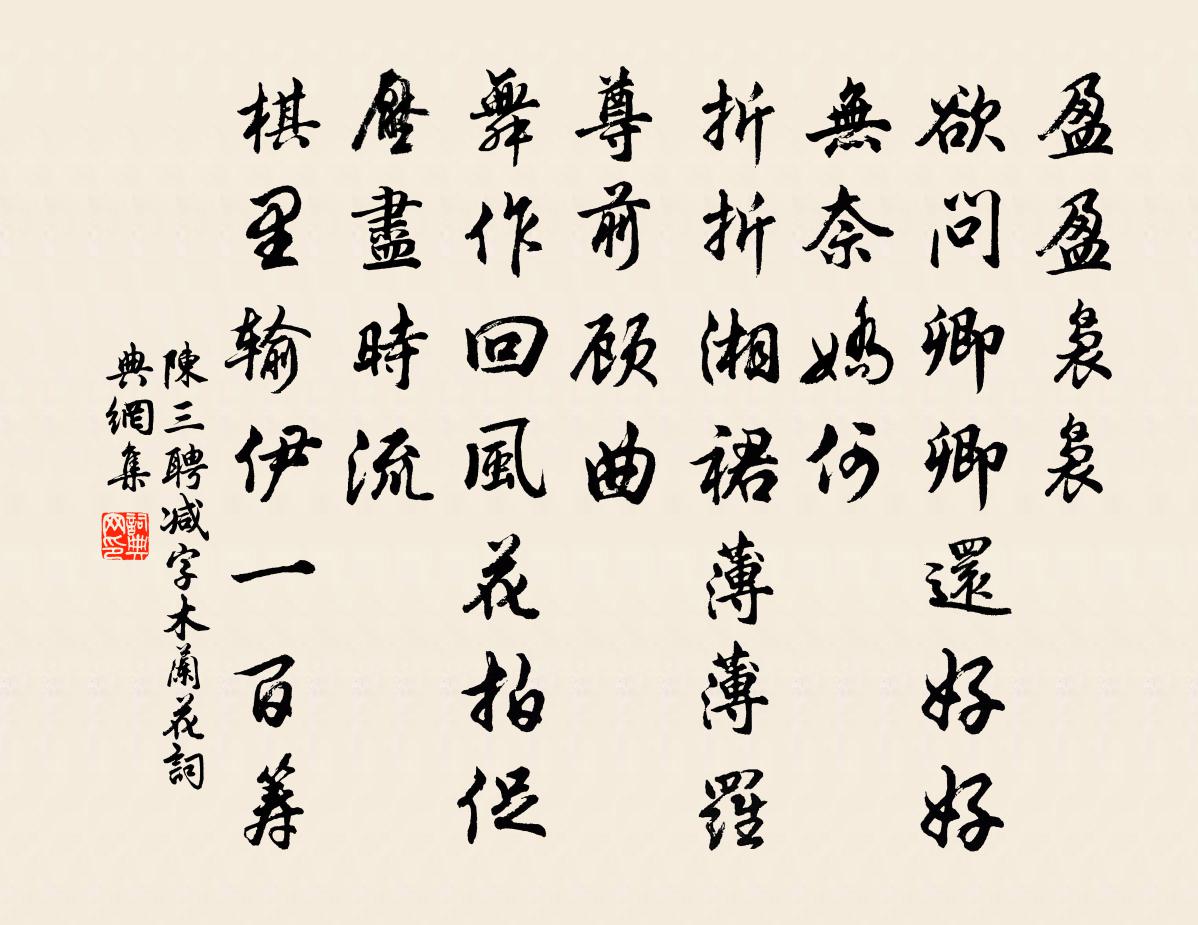 盈盈裊裊
欲問卿卿還好好
無奈嬌何
折折湘裙薄薄羅
尊前顾曲
舞作回風花拍促
壓盡時流
棋里输伊一百筹
陳三聘减字木蘭花詞
典網集
詞典网印